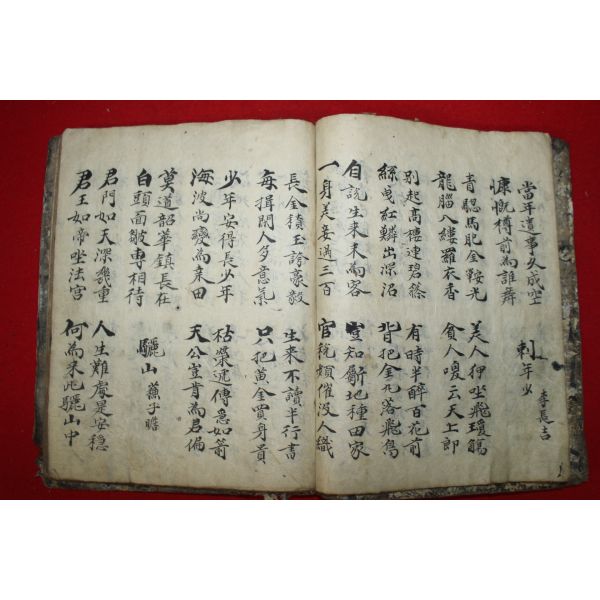 當年遺事久成空
慷慨樽前為誰舞
刺年少
李長吉
青驄馬肥金鞍光
龍腦入縷羅衣香
美人狎坐飛瓊觴
貧人喚云天上郎
別起高樓連碧篠
絲曳紅鱗出深沼
有時半醉百花前
背把金丸落飛鳥
自說生來未為客
一身美妾過三百
豈知斸地種田家
官稅頻催沒人織
長金積玉誇豪毅
每揖閑人多意氣
生來不讀半行書
只把黃金買身貴
少年安得長少年
海波尚變為桑田
枯榮遞傳急如箭
天公豈肯為君偏
莫道韶華鎮長在
白頭面皺專相待
驪山 蘇子瞻
君門如天深幾重
君王如帝坐法宮
人生難處是安穩
何為來此驪山中